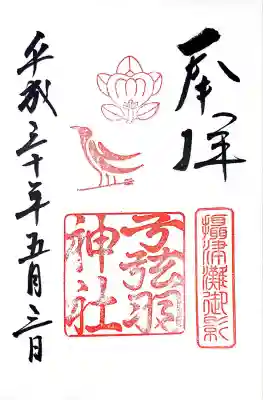 奉拝
摂津灘御影
弓弦羽
神社
平成三十年五月三日